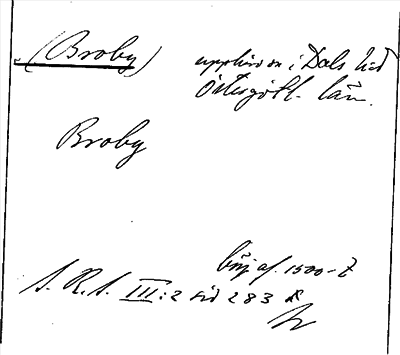 (Broby) i Dals h:d
Östergötl. län.
Broby
börj. af. 1500-t
S. R. S. III:2 sid 283